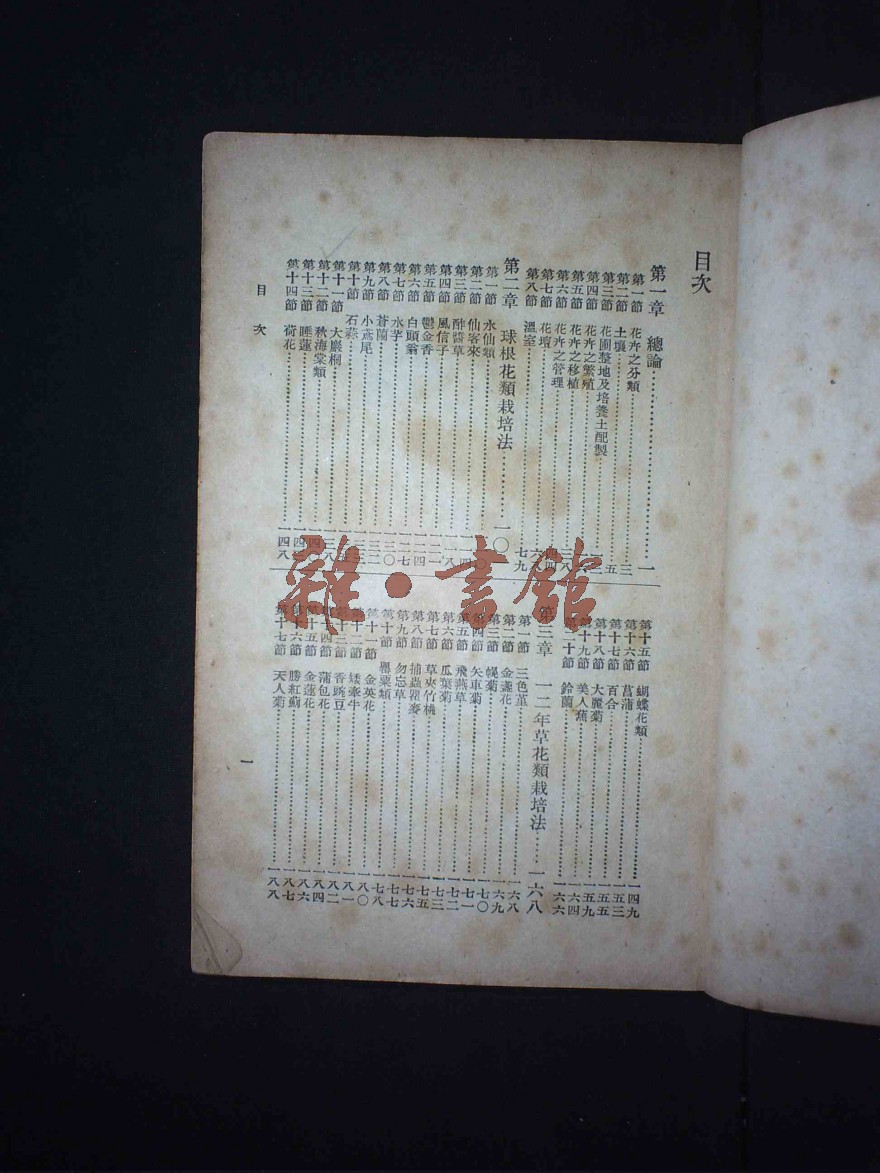 目次
第一章　總論……一
第一節　花卉之分類
第二節　土壤……三
第三節　花圃整地及培養土配製……五
第四節　花卉之繁殖
第五節　花卉之移植
第六節　花卉之管理
第七節　花壇
第八節　溫室……七九
第二章　球根花類栽培法……一〇
第一節　水仙類
第二節　仙客來
第三節　酢醬草
第四節　風信子
第五節　鬱金香
第六節　白頭翁
第七節　水芋
第八節　蒼蘭
第九節　小鳶尾
第十節　石蒜
第十一節　大巖桐
第十二節　秋海棠類
第十三節　睡蓮
第十四節　荷花……一四八
第十五節　蝴蝶花類……一四九
第十六節　菖蒲……一五三
第十七節　百合……一五五
第十八節　大麗菊……一五九
第十九節　美人蕉……一六四
第二十節　鈴蘭……一六六
第三章　一二年草花類栽培法……一六八
第一節　三色堇……一六八
第二節　金盞花……一六九
第三節　幌菊……一七〇
第四節　矢車菊……一七一
第五節　飛燕草……一七二
第六節　瓜葉菊……一七三
第七節　草夾竹桃……一七五
第八節　捕蟲瞿麥……一七六
第九節　勿忘草……一七七
第十節　罌粟類……一七八
第十一節　金英花……一八〇
第十二節　矮牽牛……一八一
第十三節　香豌豆……一八二
第十四節　蒲包花……一八四
第十五節　金蓮花……一八六
第十六節　勝紅薊……一八七
第十七節　天人菊……一八八
目次
一
雜·書館